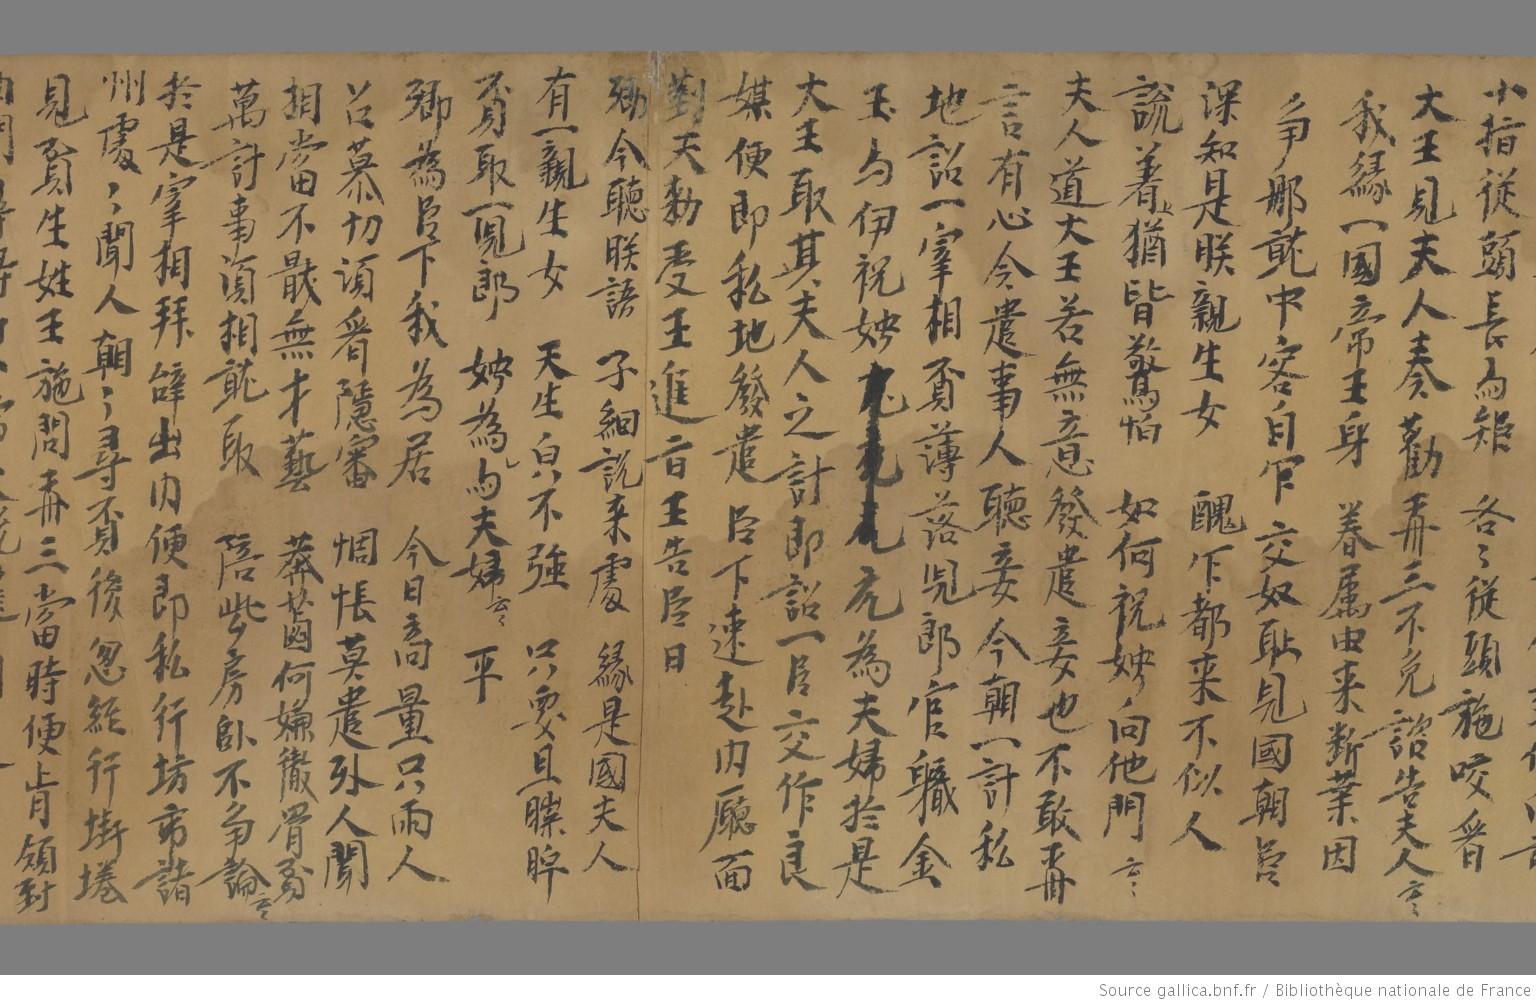 小指從頭長与短 各〻從頭施咬㖭
大王見夫人奏勸再三不免詔告夫人云〻
我緣一國帝王身 眷属由来断業因
争那就中容皃乍 交奴恥見國朝臣
深知是朕親生女 醜乍都来不似人
說着上猶皆驚怕 如何祝娉向他門 云〻
夫人道大王若無意發遣妾也不敢再
言有心令遣事人聽妾今朝一計私
地詔一宰相貧薄落児郎官軄金
玉与伊祝娉充為夫婦於是
大王取其夫人之計即詔一臣交作良
媒便即私地發遣臣下速赴內廳面
對天勑受王進旨王告臣曰
卿今聽朕語 子細說来處 緣是國夫人
有一親生女 天生白不強 只要且牒眸
覓取一児郎 娉為与夫婦 云〻 平
卿為臣下我為君 今日商量只兩人
召募切須看隱審 惆悵莫遣外人聞
相當不厭無才藝 莽蕩何嫌徹骨貧
萬計事須相就取 陪些房卧不争論 云〻
於是宰相拜辞出内便即私行坊市諸
州處〻聞人朝〻尋覓後忽經行街巷
見貧生姓王施問再三當時便肯領對
Source gallica.bnf.fr / Bibliothèque nationale de France